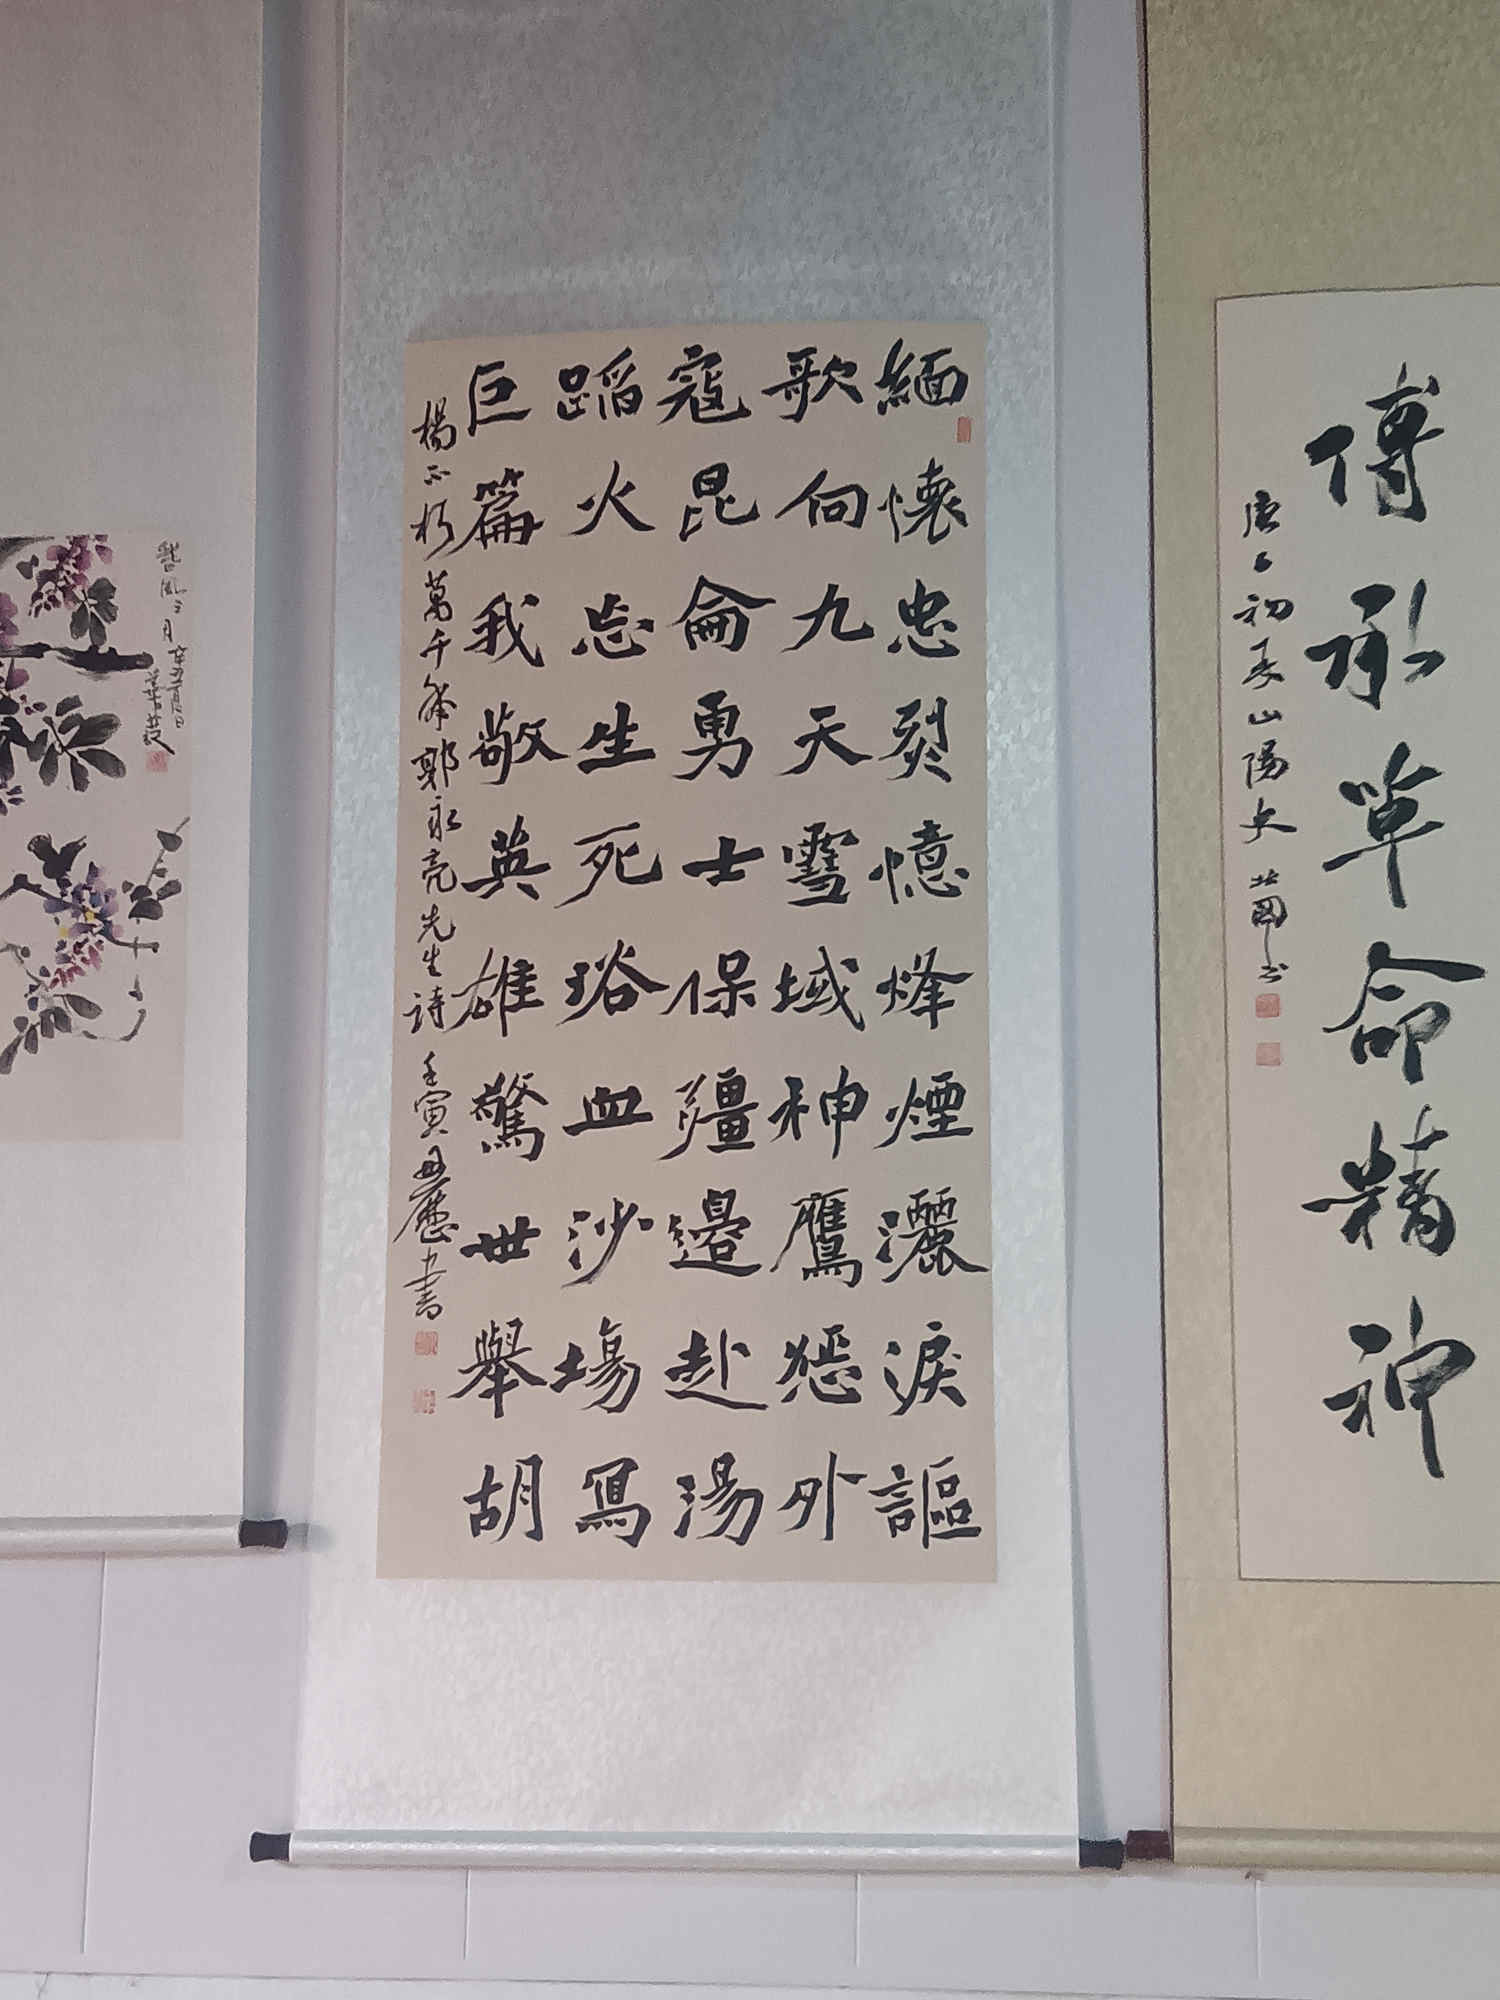 傳承革命精神
緬懷忠烈憶烽煙灑淚謳
歌向九天雪域神鷹懲外
寇昆侖勇士保疆邊赴湯
蹈火忘生死浴血沙場寫
巨篇我敬英雄驚世舉胡
楊不朽萬千年郭永亮先生詩壬寅
書